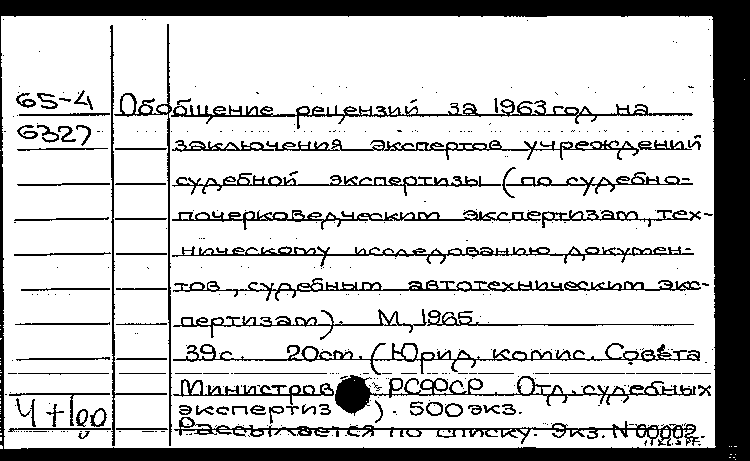 65-4 Обобщение рецензий за 1963 год, на
6327 заключения экспертов учреждений
судебной экспертизы (по судебно-
почерковедческим экспертизам, тех-
ническому исследованию докумен-
тов, судебным автотехническим экс-
пертизам). М., 1965.
39с. 20см. (Юрид. комис. Совета
Министров РСФСР Отд. судебных
экспертиз). 500экз.
Рассылается по списку. Экз. N 00002.